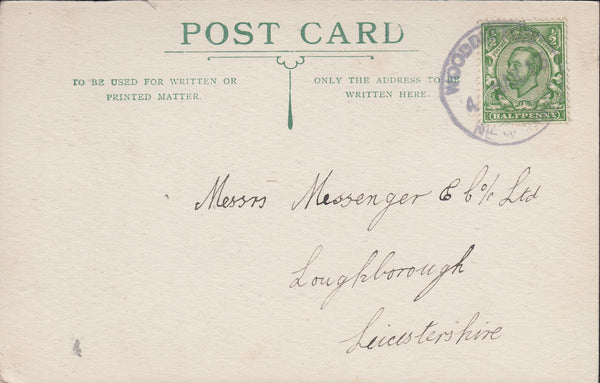 POST CARD
TO BE USED FOR WRITTEN OR
PRINTED MATTER.
ONLY THE ADDRESS TO BE
WRITTEN HERE.
HALFPENNY
Messrs Messenger & Co/ Ltd
Loughborough
Leicestershire